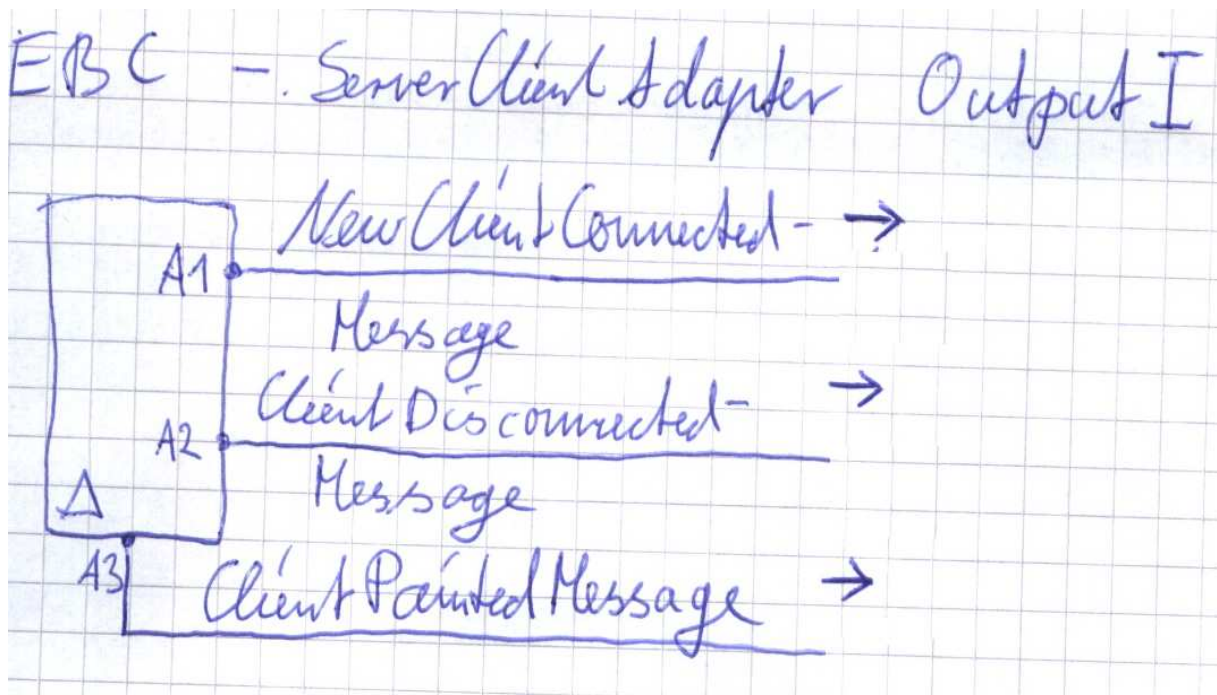 EBC - ServerClientAdapter Output I
NewClientConnected- →
A1
Message
ClientDisconnected- →
A2
Message
A3 ClientPaintedMessage →